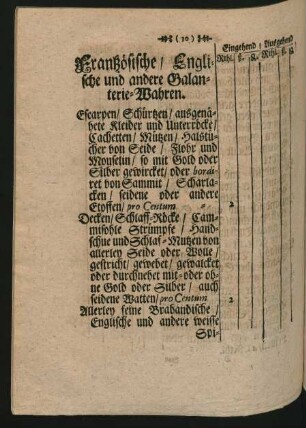 ( 30 )
Eingehend / Ausgehend
Rthl. ß. ₰. Rthl. ß. ₰.
Frantzösische / Engli-
sche und andere Galan-
terie-Wahren.
Escarpen / Schürtzen / ausgenä-
hete Kleider und Unterröcke /
Cachetten / Mützen / Halstü-
cher von Seide / Flohr und
Mouselin / so mit Gold oder
Silber gewircket / oder bordi-
ret von Sammit / Scharla-
cken / seidene oder andere
Etoffen / pro Centum 2
Decken / Schlaff-Röcke / Cam-
misohle Strümpfe / Hand-
schue und Schlaf-Mützen von
allerley Seide oder Wolle /
gestrickt / gewebet / gewalcket
oder durchnehet mit- oder oh-
ne Gold oder Silber / auch
seidene Watten / pro Centum 2
Allerley feine Brabandische /
Englische und andere weisse
Spi-